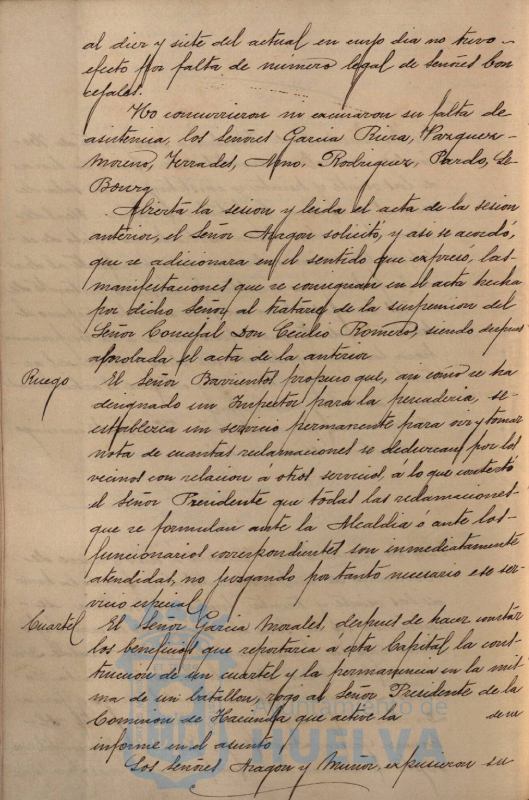 al diez y siete del actual en cuyo dia no tuvo
efecto por falta de número legal de señores Con
cejales.
No concurrieron ni excusaron su falta de
asistencia, los Señores Garcia Riera, Vazquez
Moreno, Terrades, Rodriguez, Pardo, Le
Bourg
Abierta la sesion y leida el acta de la sesion
anterior, el Señor Aragon solicitó, y asi se acordó,
que se adicionara en el sentido que expresó, las
manifestaciones que se consignan en el acta hecha
por dicho Señor al tratarse de la suspension del
Señor Concejal Don Cecilio Romero, siendo despues
aprobada el acta de la anterior
Ruego
El Señor Barrientos propuso que, asi como se ha
designado un Inspector para la pescaderia, se
establezca un servicio permanente para oir y tomar
nota de cuantas reclamaciones se deduzcan por los
vecinos con relacion á otros servicios, á lo que contestó
el Señor Presidente que todas las reclamaciones
que se formulan ante la Alcaldia ó ante los
funcionarios correspondientes son inmediatamente
atendidas, no juzgando por tanto necesario ese ser-
vicio especial
Cuartel
El Señor Garcia Morales, despues de hacer constar
los beneficios que reportaria á esta Capital la cons-
trucion de un cuartel y la permanencia en la mis
ma de un batallon, rogo al Señor Presidente de la
Comision de Hacienda que active la
informe en el asunto
Los Señores Aragon y Muñoz, expusieron su
Ayuntamiento de
HUELVA